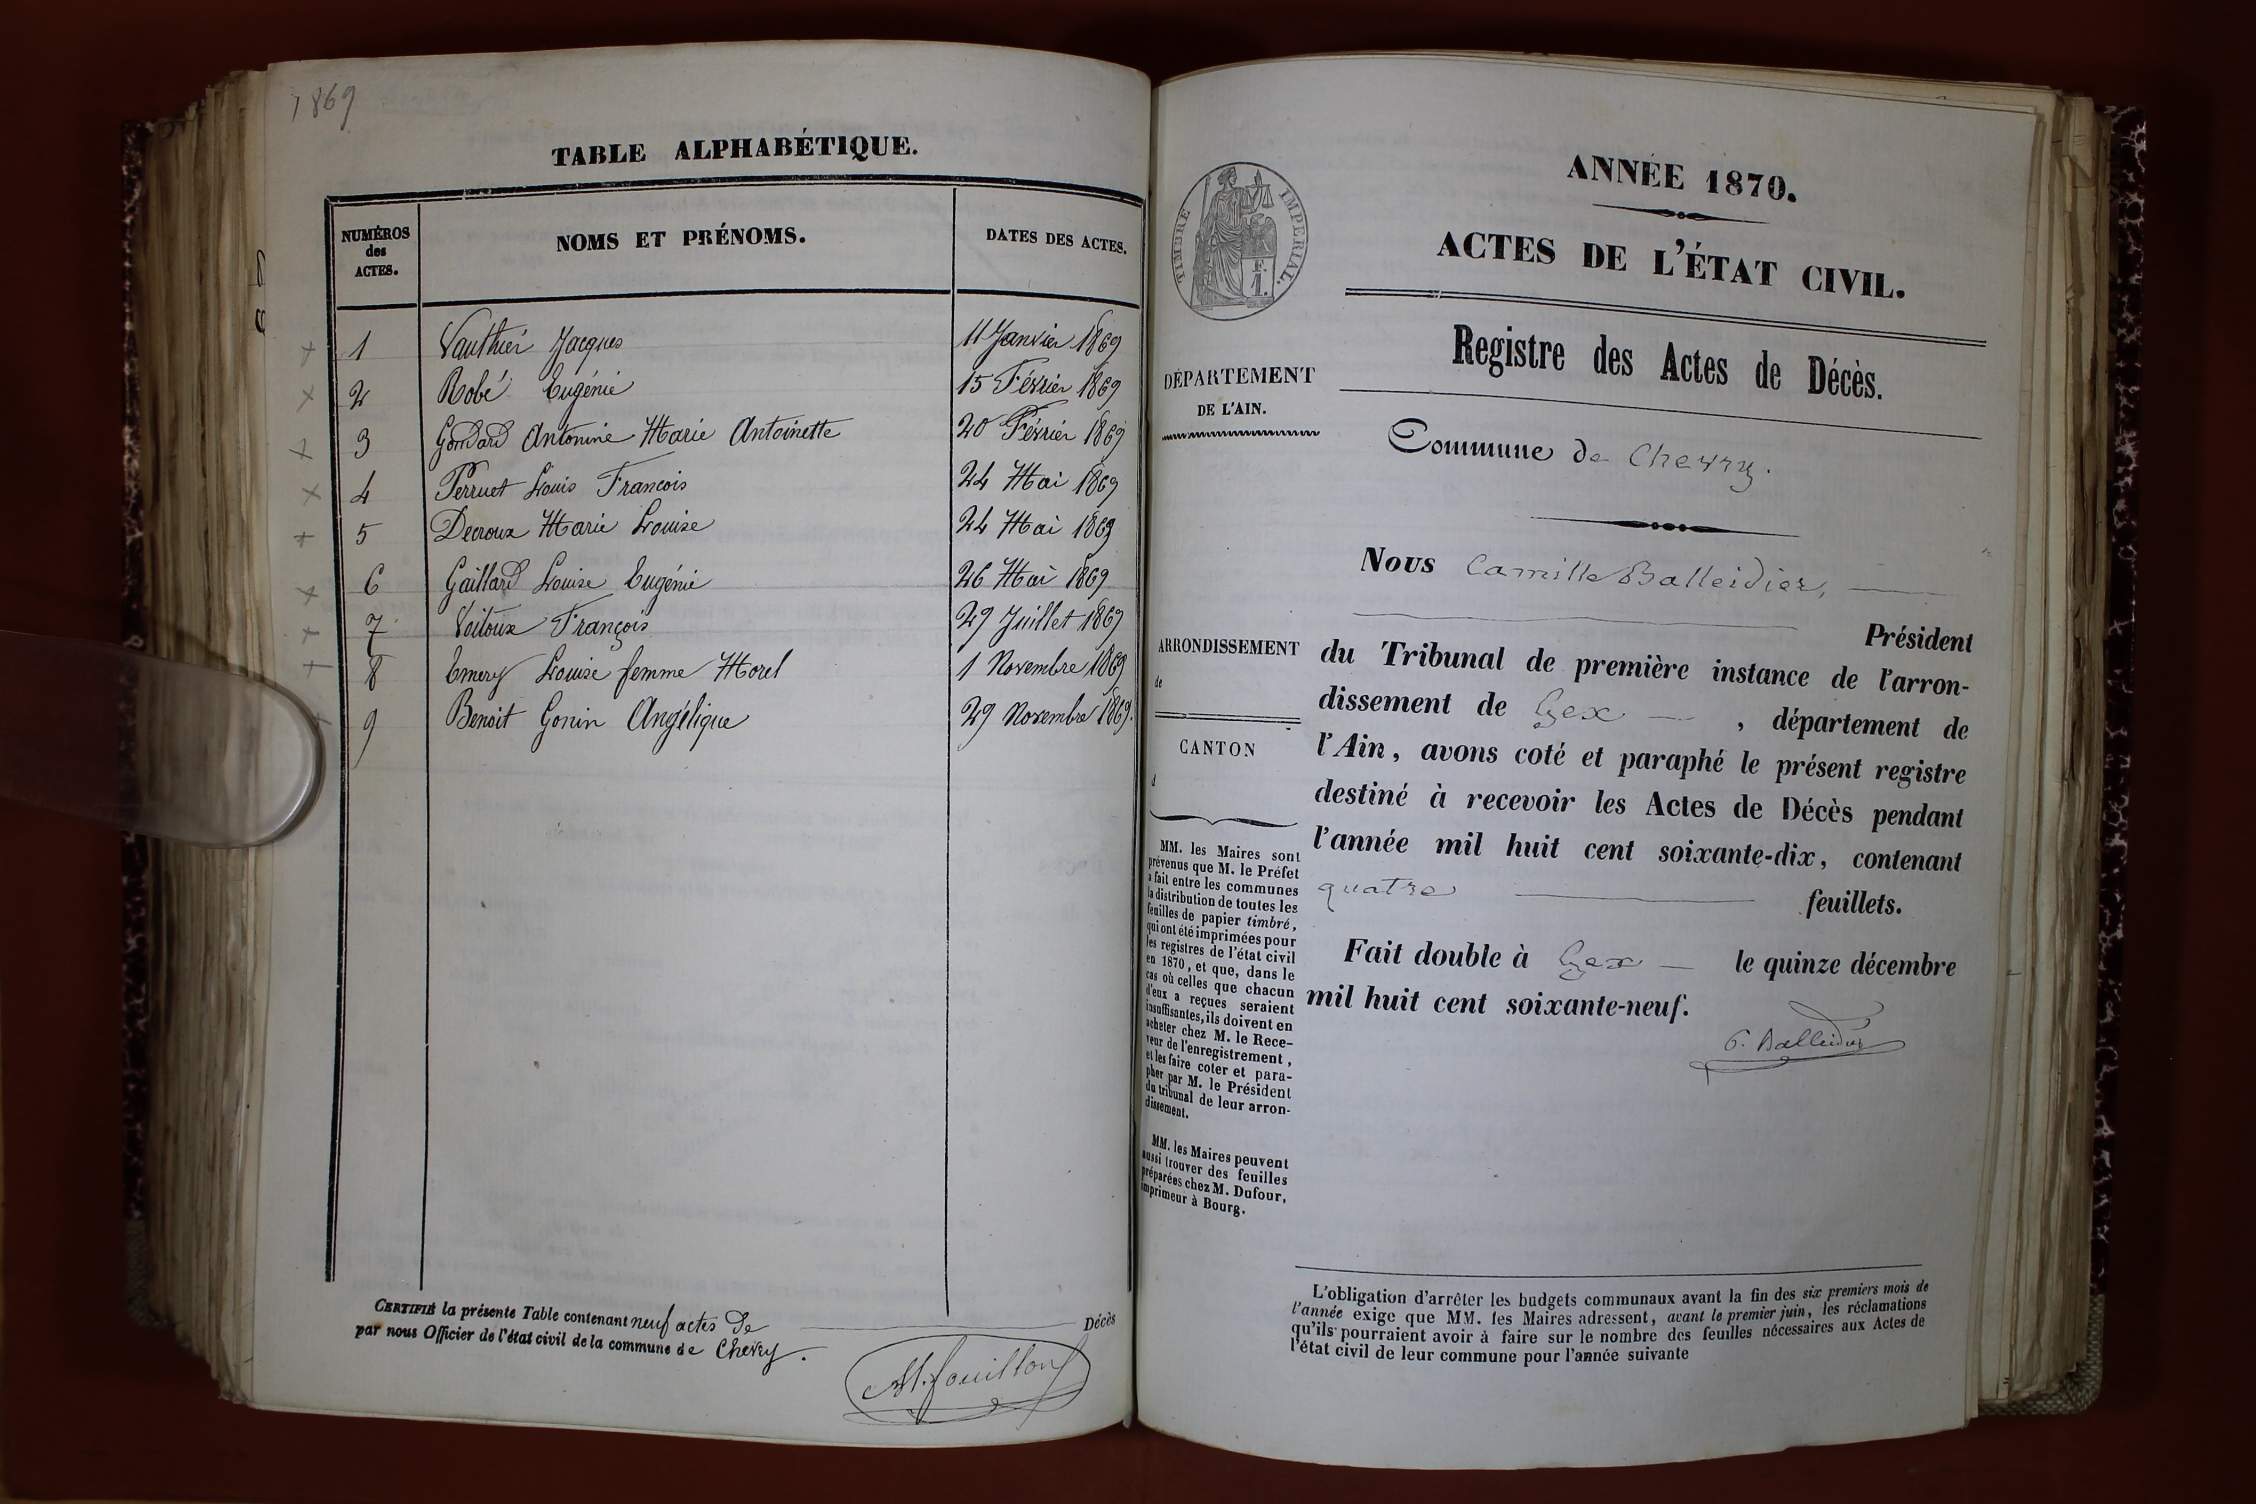 1869
TABLE ALPHABÉTIQUE.
NUMÉROS des ACTES. NOMS ET PRÉNOMS. DATES DES ACTES.
1 Vauthier Jacques 11 Janvier 1869
2 Robé Eugénie 15 Février 1869
3 Gondard Antonine Marie Antoinette 20 Février 1869
4 Perruet Louis Francois 24 Mai 1869
5 Decroux Marie Louise 24 Mai 1869
6 Gaillard Louise Eugénie 26 Mai 1869
7 Voitoux François 29 Juillet 1869
8 Emery Louise femme Morel 1 Novembre 1869
9 Benoit Gonin Angélique 29 Novembre 1869.
CERTIFIÉ la présente Table contenant neuf actes de Décès
par nous Officier de l'état civil de la commune de Chevry.
ANNÉE 1870.
ACTES DE L'ÉTAT CIVIL.
TIMBRE IMPÉRIAL.
F.
1.
Registre des Actes de Décès.
DÉPARTEMENT
DE L'AIN.
Commune de Chevry.
Nous Camille Balleidier,
Président
ARRONDISSEMENT
de
CANTON
d
du Tribunal de première instance de l'arron-
dissement de Gex, département de
l'Ain, avons coté et paraphé le présent registre
destiné à recevoir les Actes de Décès pendant
l'année mil huit cent soixante-dix, contenant
quatre feuillets.
Fait double à Gex le quinze décembre
mil huit cent soixante-neuf.
C. Balleidier
MM. les Maires sont
prévenus que M. le Préfet
a fait entre les communes
la distribution de toutes les
feuilles de papier timbré,
qui ont été imprimées pour
les registres de l'état civil
en 1870, et que, dans le
cas où celles que chacun
d'eux a reçues seraient
insuffisantes, ils doivent en
acheter chez M. le Rece-
veur de l'enregistrement,
et les faire coter et para-
pher par M. le Président
du tribunal de leur arron-
dissement.
MM. les Maires peuvent
aussi trouver des feuilles
préparées chez M. Dufour,
imprimeur à Bourg.
L'obligation d'arrêter les budgets communaux avant la fin des six premiers mois de
l'année exige que MM. les Maires adressent, avant le premier juin, les réclamations
qu'ils pourraient avoir à faire sur le nombre des feuilles nécessaires aux Actes de
l'état civil de leur commune pour l'année suivante